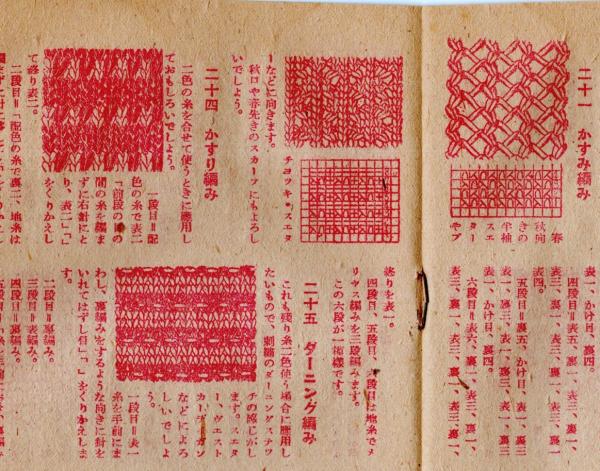 二十一 かすみ編み
春
秋向
きの
半袖
スエ
ター
やプ
チヨツキ・スエタ
ーなどに向きます。
秋口や春先きのスカーフにもよろし
いでしよう。
二十四 かすり編み
二色の糸を合せて使うときに應用し
ておもしろいでしよう。
一段目＝配
色の糸で表二
「前段の目の
間の糸を編ま
ずに右針にと
り、表二」、「」
をくりかえし
て終り表二。
二段目＝「配色の糸で裏二、地糸は
表一、かけ目、裏四。
四段目＝表五、裏一、表三、裏一、
表四。
五段目＝裏五、かけ目、表一、裏
一、表三、裏一、表一、かけ目、裏四。
六段目＝表六、裏一、表一、裏一、
表三、裏一、表一、裏一、表三、裏一、
終りを表一。
四段目、五段目、六段目は地糸でメ
リヤス編みを三段編みます。
この六段が一模様です。
二十五 ダーニング編み
これも残り糸二色使う場合に應用し
たいもので、刺繍のダーニングステツ
チの感じがし
ます。スエタ
ー、ヴエスト
カーデイガン
などによろ
しいでしよ
う。
一段目＝表一
糸を手前にま
わし、裏編みをするような向きに針を
いれてはずし目」、「」をくりかえしま
す。
二段目＝裏編み。
三段目＝表編み。
四段目＝裏編み。